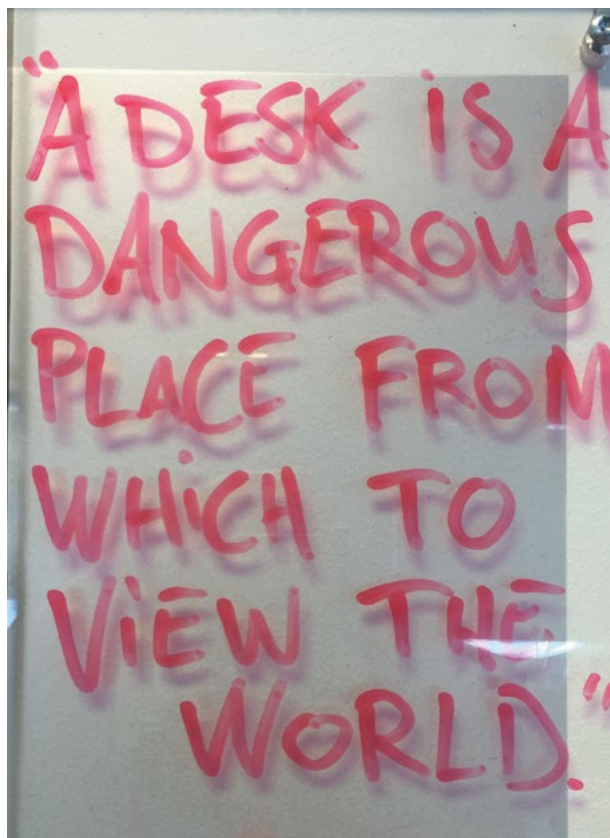 "A DESK iS A
DANGEROUS
PLACE FROM
WHiCH TO
ViEW THE
WORLD."